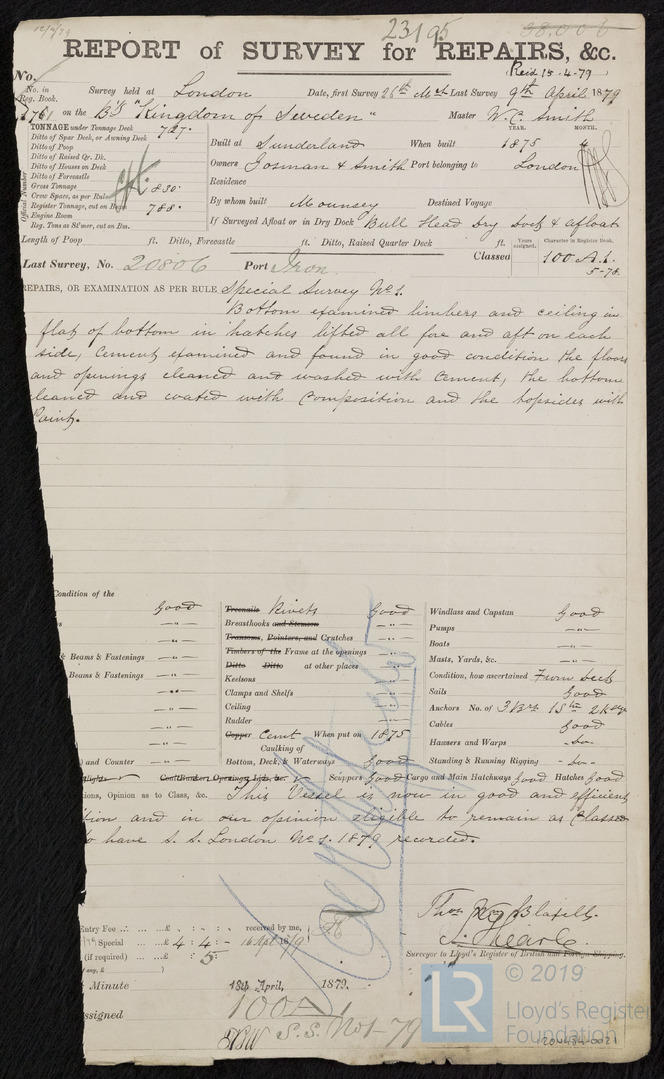 12/4/79
23195
38.006
REPORT of SURVEY for REPAIRS, &c.
Recd 15.4.79
No.
No. in Reg. Book. Survey held at London Date, first Survey 26th Mch Last Survey 9th April 1879
1761 on the Bk "Kingdom of Sweden" Master W. C. Smith
TONNAGE under Tonnage Deck 727.
Ditto of Spar Deck, or Awning Deck
Ditto of Poop
Ditto of Raised Qr. Dk.
Ditto of Houses on Deck
Ditto of Forecastle
Gross Tonnage 830
Crew Space, as per Rule
Register Tonnage, cut on Beam 788.
Engine Room
Reg. Tons as St'mer, cut on Bm.
Official Number
Built at Sunderland When built YEAR. 1875 MONTH. 4
Owners Josman & Smith Port belonging to London
Residence
By whom built Mounsey Destined Voyage
If Surveyed Afloat or in Dry Dock Bull Head Dry Dock & afloat
Length of Poop ft. Ditto, Forecastle ft. Ditto, Raised Quarter Deck ft.
Last Survey, No. 20806 Port Iron
Classed Years assigned. Character in Register Book. 100 A.1.
5-78
REPAIRS, OR EXAMINATION AS PER RULE Special Survey No 1.
Bottom examined limbers and ceiling in
flat of bottom in hatches lifted all fore and aft on each
side, Cement examined and found in good condition the floors
and openings cleaned and washed with Cement, the bottom
cleaned and coated with Composition and the topsides with
Paint.
Condition of the
Good
Beams & Fastenings
Beams & Fastenings
and Counter
Treenails Rivets Good
Breasthooks and Stemson
Transoms, Pointers, and Crutches
Timbers of the Frame at the openings
Ditto Ditto at other places
Keelsons
Clamps and Shelfs
Ceiling
Rudder
Copper Cemt When put on 1875
Caulking of
Bottom, Deck, & Waterways Good
Windlass and Capstan Good
Pumps
Boats
Masts, Yards, &c.
Condition, how ascertained From deck
Sails Good
Anchors No. of 3 Brs 1 Stm 2 Kedge
Cables Good
Hawsers and Warps - Do -
Standing & Running Rigging - Do -
Scuppers Good Cargo and Main Hatchways Good Hatches Good
ions, Opinion as to Class, &c. This Vessel is now in good and efficient
tion and in our opinion eligible to remain as Classed
to have S. S. London No 1. 1879 recorded.
Entry Fee ... £ : : received by me,
Special ... £ 4 : 4 : - 16 Apl 1879
(if required) ... £ : 5 :
(if any, £ )
Surveyor to Lloyd's Register of British and Foreign Shipping.
Minute 18th April, 1879.
ssigned 100 A 1
S.S. No 1-79
LR
© 2019
Lloyd's Register
Foundation